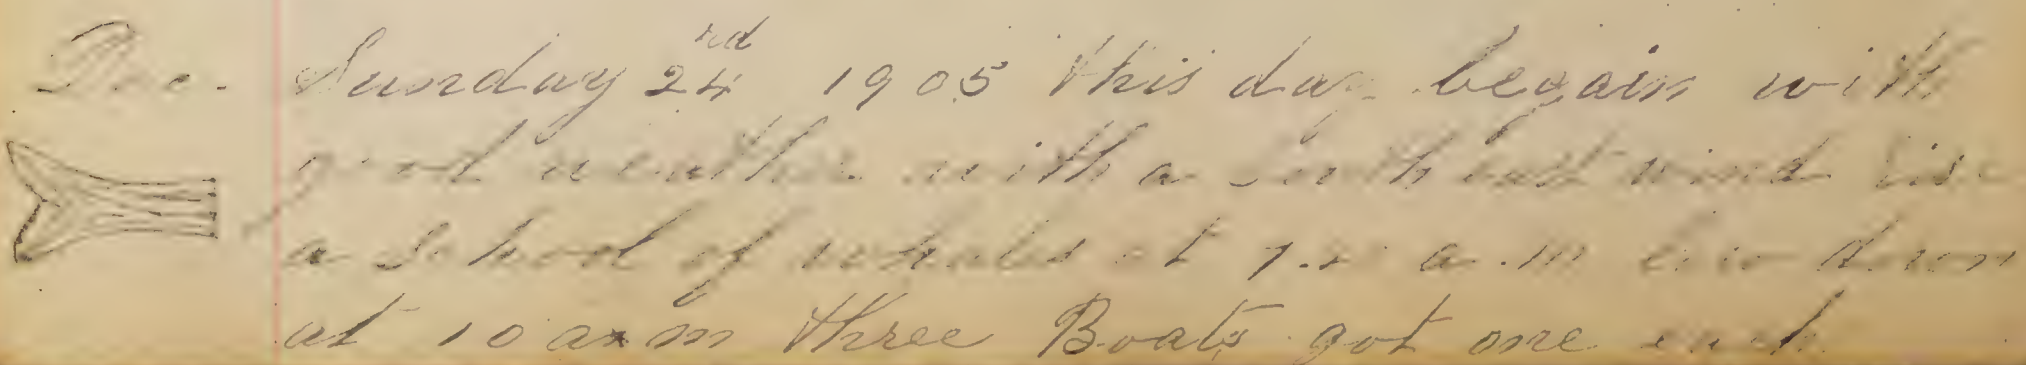 Dec. Sunday 24rd 1905 this day begain with
good weather with a South east wind
a School of whales at 7. a.m low down
at 10 a m three Boats got one each